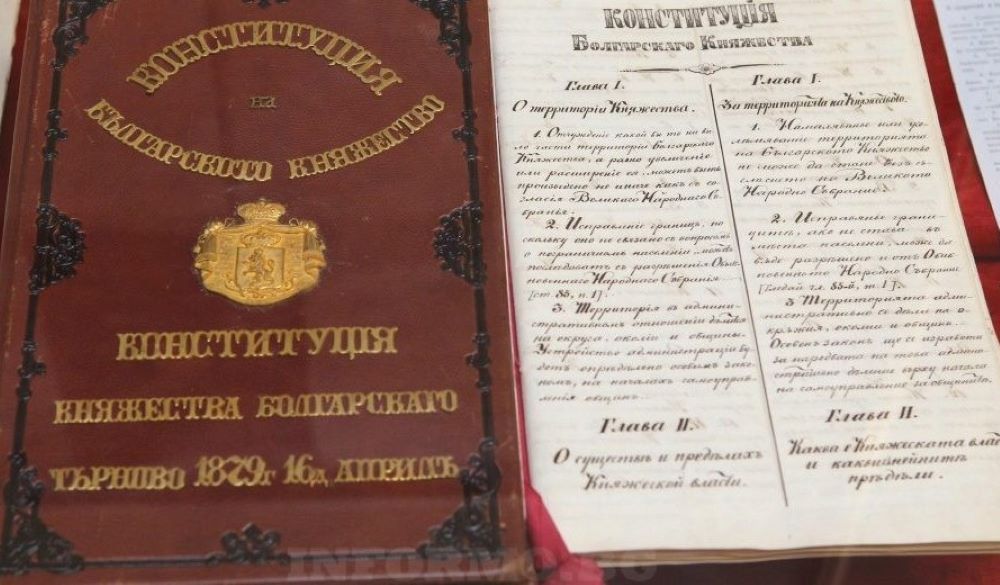 КОНСТИТУЦИЯ
на
БЪЛГАРСКОТО КНЯЖЕСТВО
КОНСТИТУЦІЯ
КНЯЖЕСТВА БОЛГАРСКАГО
ТЪРНОВО 1879г 16д АПРИЛЪ
КОНСТИТУЦІЯ
БОЛГАРСКАГО КНЯЖЕСТВА
Глава I.
О территоріи Княжества.
1. Отчужденіе какой бы то ни бы-
ло части территоріи Болгарскаго
Княжества, а равно увеличеніе
или расширеніе ея, можетъ быть
произведено не иначе какъ съ со-
гласія Великаго Народнаго Со-
бранья.
2. Исправленіе границъ, по-
скольку оно не связано съ вопросомъ
о пограничномъ населеніи, можетъ
послѣдовать съ разрѣшенія Обык-
новеннаго Народнаго Собранія
[ст. 85, п. 1].
3. Территорія въ админи-
стративномъ отношеніи дѣлится
на округа, околіи и общины.
Устройство администраціи бу-
детъ опредѣлено особымъ зако-
номъ, на началахъ самоуправ-
ленія общинъ.
Глава II.
О существѣ и предѣлахъ
Княжеской власти.
Глава I.
За територията на Княжеството.
1. Намаляванье или уго-
лѣмяванье територията
на Българското Княжество
не може да стане безъ съ-
гласието на Великото
Народно Събрание.
2. Исправянье грани-
цитѣ, ако не става въ
мѣста населени, може да
бѫде разрѣшено и отъ Обик-
новенното Народно Събрание
[Виждай гл. 85-й, т. 1].
3. Територията адми-
нистративно се дѣли на о-
крѫжия, околии и общини.
Особенъ законъ ще се изработи
за наредбата на това админи-
стративно дѣленье върху начала
на самоуправление за общинитѣ.
Глава II.
Каква е Княжеската влас
и какви сѫ нейнитѣ
прѣдѣли.
INFORMO.BG